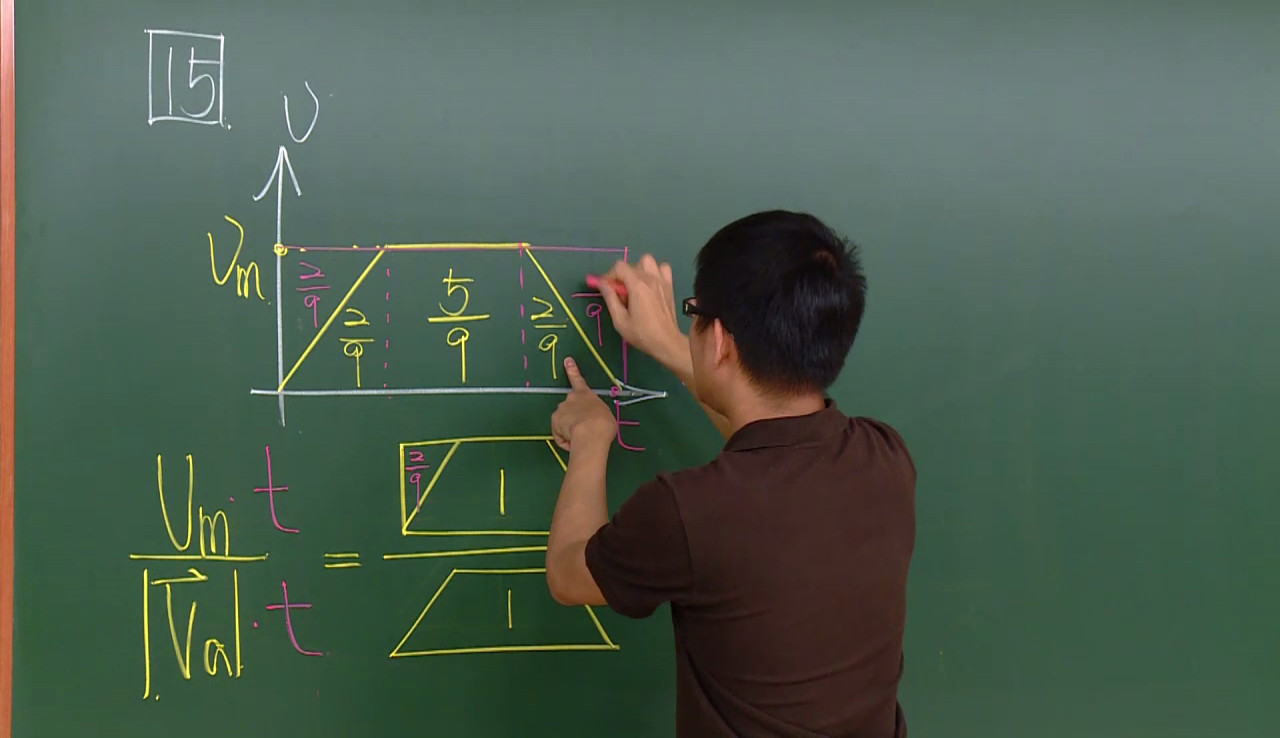 15
υ
υm
2/9
2/9
5/9
2/9
9
t
υm · t
|Va| · t
=
2/9
1
1